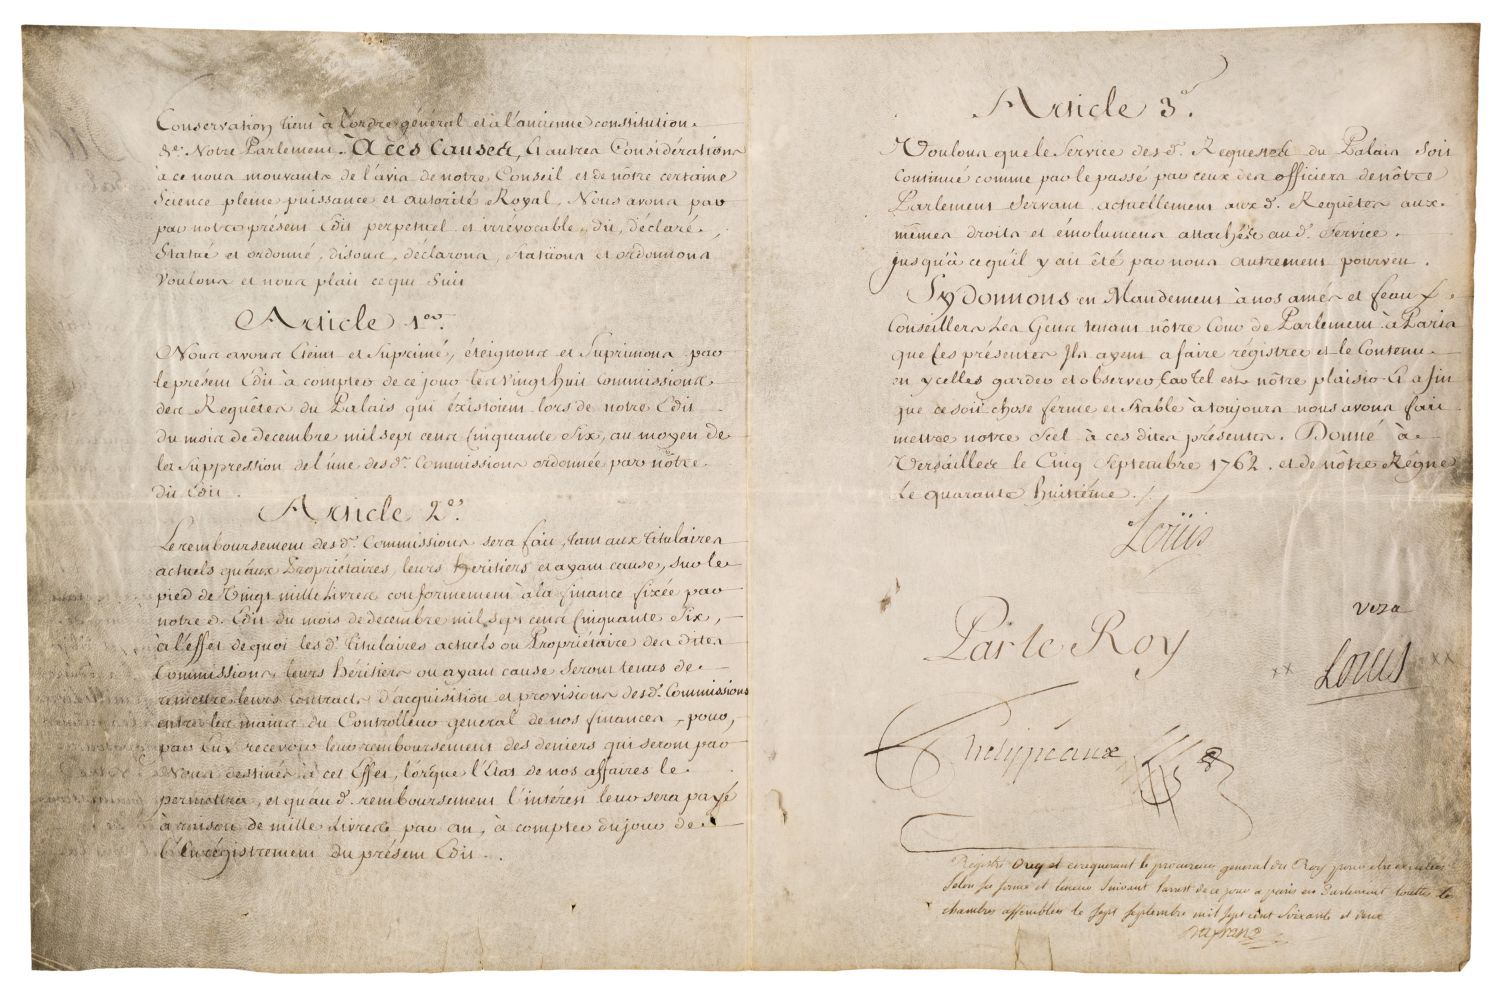 Conservation tient à l'ordre général et à l'ancienne constitution
de Notre Parlement. À ces Causes, Et autres Considérations
à ce nous mouvants de l'avis de notre Conseil et de nôtre certaine
Science pleine puissance et autorité Royal, Nous avons par
par notre présent Edit perpetuel et irrévocable, dit, déclaré,
Statué et ordonné, disons, déclarons, statüons et ordonnons
Voulons et nous plait ce que Suit
Article 1er.
Nous avons Eteint et Suprimé, éteignons et Suprimons par
le présent Edit à compter de ce jour les vingt huit Commissions
des Requêtes du Palais qui éxistoient lors de notre Edit
du mois de decembre mil sept cens Cinquante Six, au moyen de
la Suppression de l'une des ds. Commissions ordonnée par nôtre
dit Edit.
Article 2e.
Le remboursement des ds. Commissions sera fait, tant aux titulaires
actuels qu'aux Propriétaires, leurs héritiers et ayant cause, sur le
pied de Vingt mille Livres conformement à la finance fixée par
notre d. Edit du mois de decembre mil sept cens Cinquante Six,
à l'effet de quoi les ds. titulaires actuels ou Propriétaire des dites
Commissions, leurs héritiers ou ayant cause seront tenus de
remettre leurs Contracts d'acquisition et provisions des ds. Commissions
entre les mains du Controlleur general de nos finances, pour,
par Eux recevoir leur remboursement des deniers qui seront par
Nous destinés à cet Effet, lorsque l'Etat de nos affaires le
permettra, et qu'au d. remboursement l'intérest leur sera payé
à raison de mille Livres par an, à compter du jour de
l'Enrégistrement du présent Edit.
Article 3e.
Voulons que le Service des ds. Requestes du Palais soit
Continué comme par le passé par ceux des officiers de nôtre
Parlement Servant actuellement aux ds. Requêtes aux
mêmes droits et émolumens attachés au d. Service
jusqu'à ce qu'il y ait été par nous autrement pourveu.
Sy Donnons en Mandement à nos amés et feaux
Conseillers Les Gens tenant nôtre Cour de Parlement à Paris
que Ces présentes Ils ayent a faire régistrer et le Contenu
en ycelles garder et observer Car tel est nôtre plaisir Et afin
que ce soit chose ferme et stable à toujours nous avons fait
mettre notre Scel à ces dites présentes. Donné à
Versailles le Cinq Septembre 1762. et de nôtre Règne
Le quarante huitiéme.
Loüis
Visa
Par le Roy
Louis
Phelypeaux
Registré Ouy et ce requerant le procureur general du Roy pour etre executé
Selon sa forme et teneur Suivant l'arrest de ce jour a paris en Parlement toutes les
chambres assemblées le sept septembre mil sept cent Soixante et deux
Dufranc